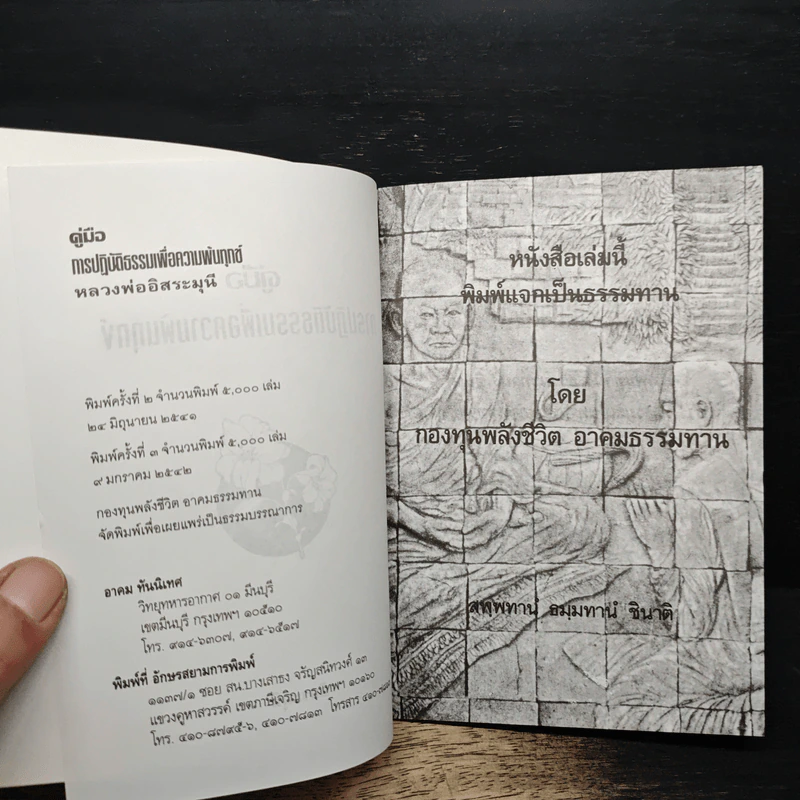 คู่มือ
การปฏิบัติธรรมเพื่อความพ้นทุกข์
หลวงพ่ออิสระมุนี
พิมพ์ครั้งที่ ๒ จำนวนพิมพ์ ๕,๐๐๐ เล่ม
๒๔ มิถุนายน ๒๕๔๑
พิมพ์ครั้งที่ ๓ จำนวนพิมพ์ ๕,๐๐๐ เล่ม
๙ มกราคม ๒๕๔๒
กองทุนพลังชีวิต อาคมธรรมทาน
จัดพิมพ์เพื่อเผยแพร่เป็นธรรมบรรณาการ
อาคม ทันนิเทศ
วิทยุทหารอากาศ ๐๑ มีนบุรี
เขตมีนบุรี กรุงเทพฯ ๑๐๕๑๐
โทร. ๙๑๔-๖๓๐๗, ๙๑๔-๖๕๑๗
พิมพ์ที่ อักษรสยามการพิมพ์
๑๑๓๗/๑ ซอย สน.บางเสาธง จรัญสนิทวงศ์ ๑๓
แขวงคูหาสวรรค์ เขตภาษีเจริญ กรุงเทพฯ ๑๐๑๖๐
โทร. ๔๑๐-๘๗๙๕-๖, ๔๑๐-๗๘๑๓ โทรสาร ๔๑๐-๗๘
หนังสือเล่มนี้
พิมพ์แจกเป็นธรรมทาน
โดย
กองทุนพลังชีวิต อาคมธรรมทาน
สพฺพทานํ ธมฺมทานํ ชินาติ